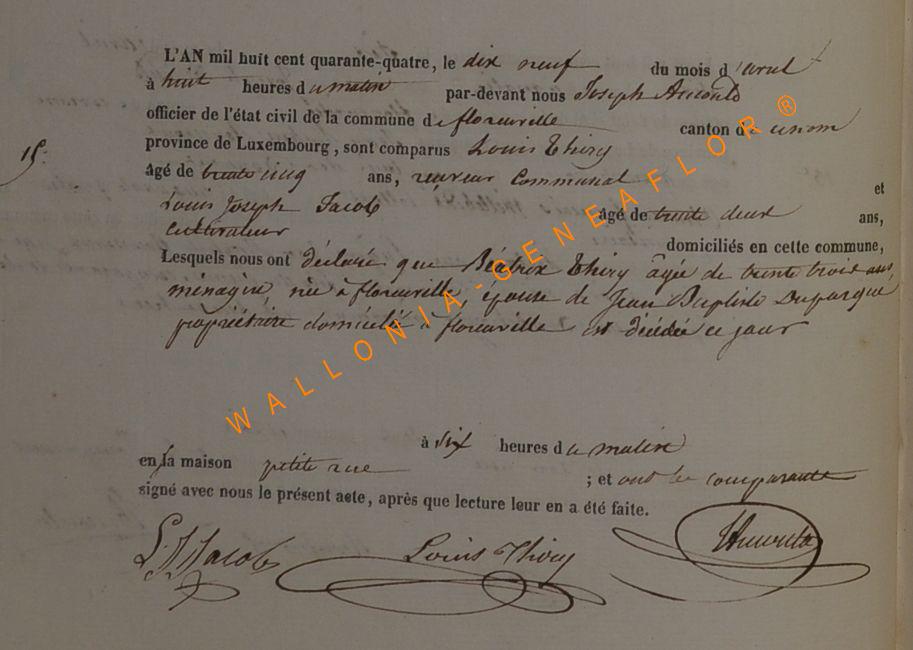 L'AN mil huit cent quarante-quatre, le dix neuf du mois d'avril
à huit heures du matin par-devant nous Joseph
officier de l'état civil de la commune de florenville canton de ce nom
15.
province de Luxembourg, sont comparus Louis Thiry
âgé de trente cinq ans, receveur Communal et
Louis Joseph Jacob âgé de trente deux ans,
Cultivateur domiciliés en cette commune,
Lesquels nous ont déclaré que Béatrix Thiry âgée de trente trois ans
ménagère, née à florenville, épouse de Jean Baptiste Duparque
propriétaire domicilié à florenville est décédée ce jour
WALLONIA-GENEAFLOR®
à six heures du matin
en sa maison petite rue ; et ont les comparants
signé avec nous le présent acte, après que lecture leur en a été faite.
L J Jacob Louis Thiry